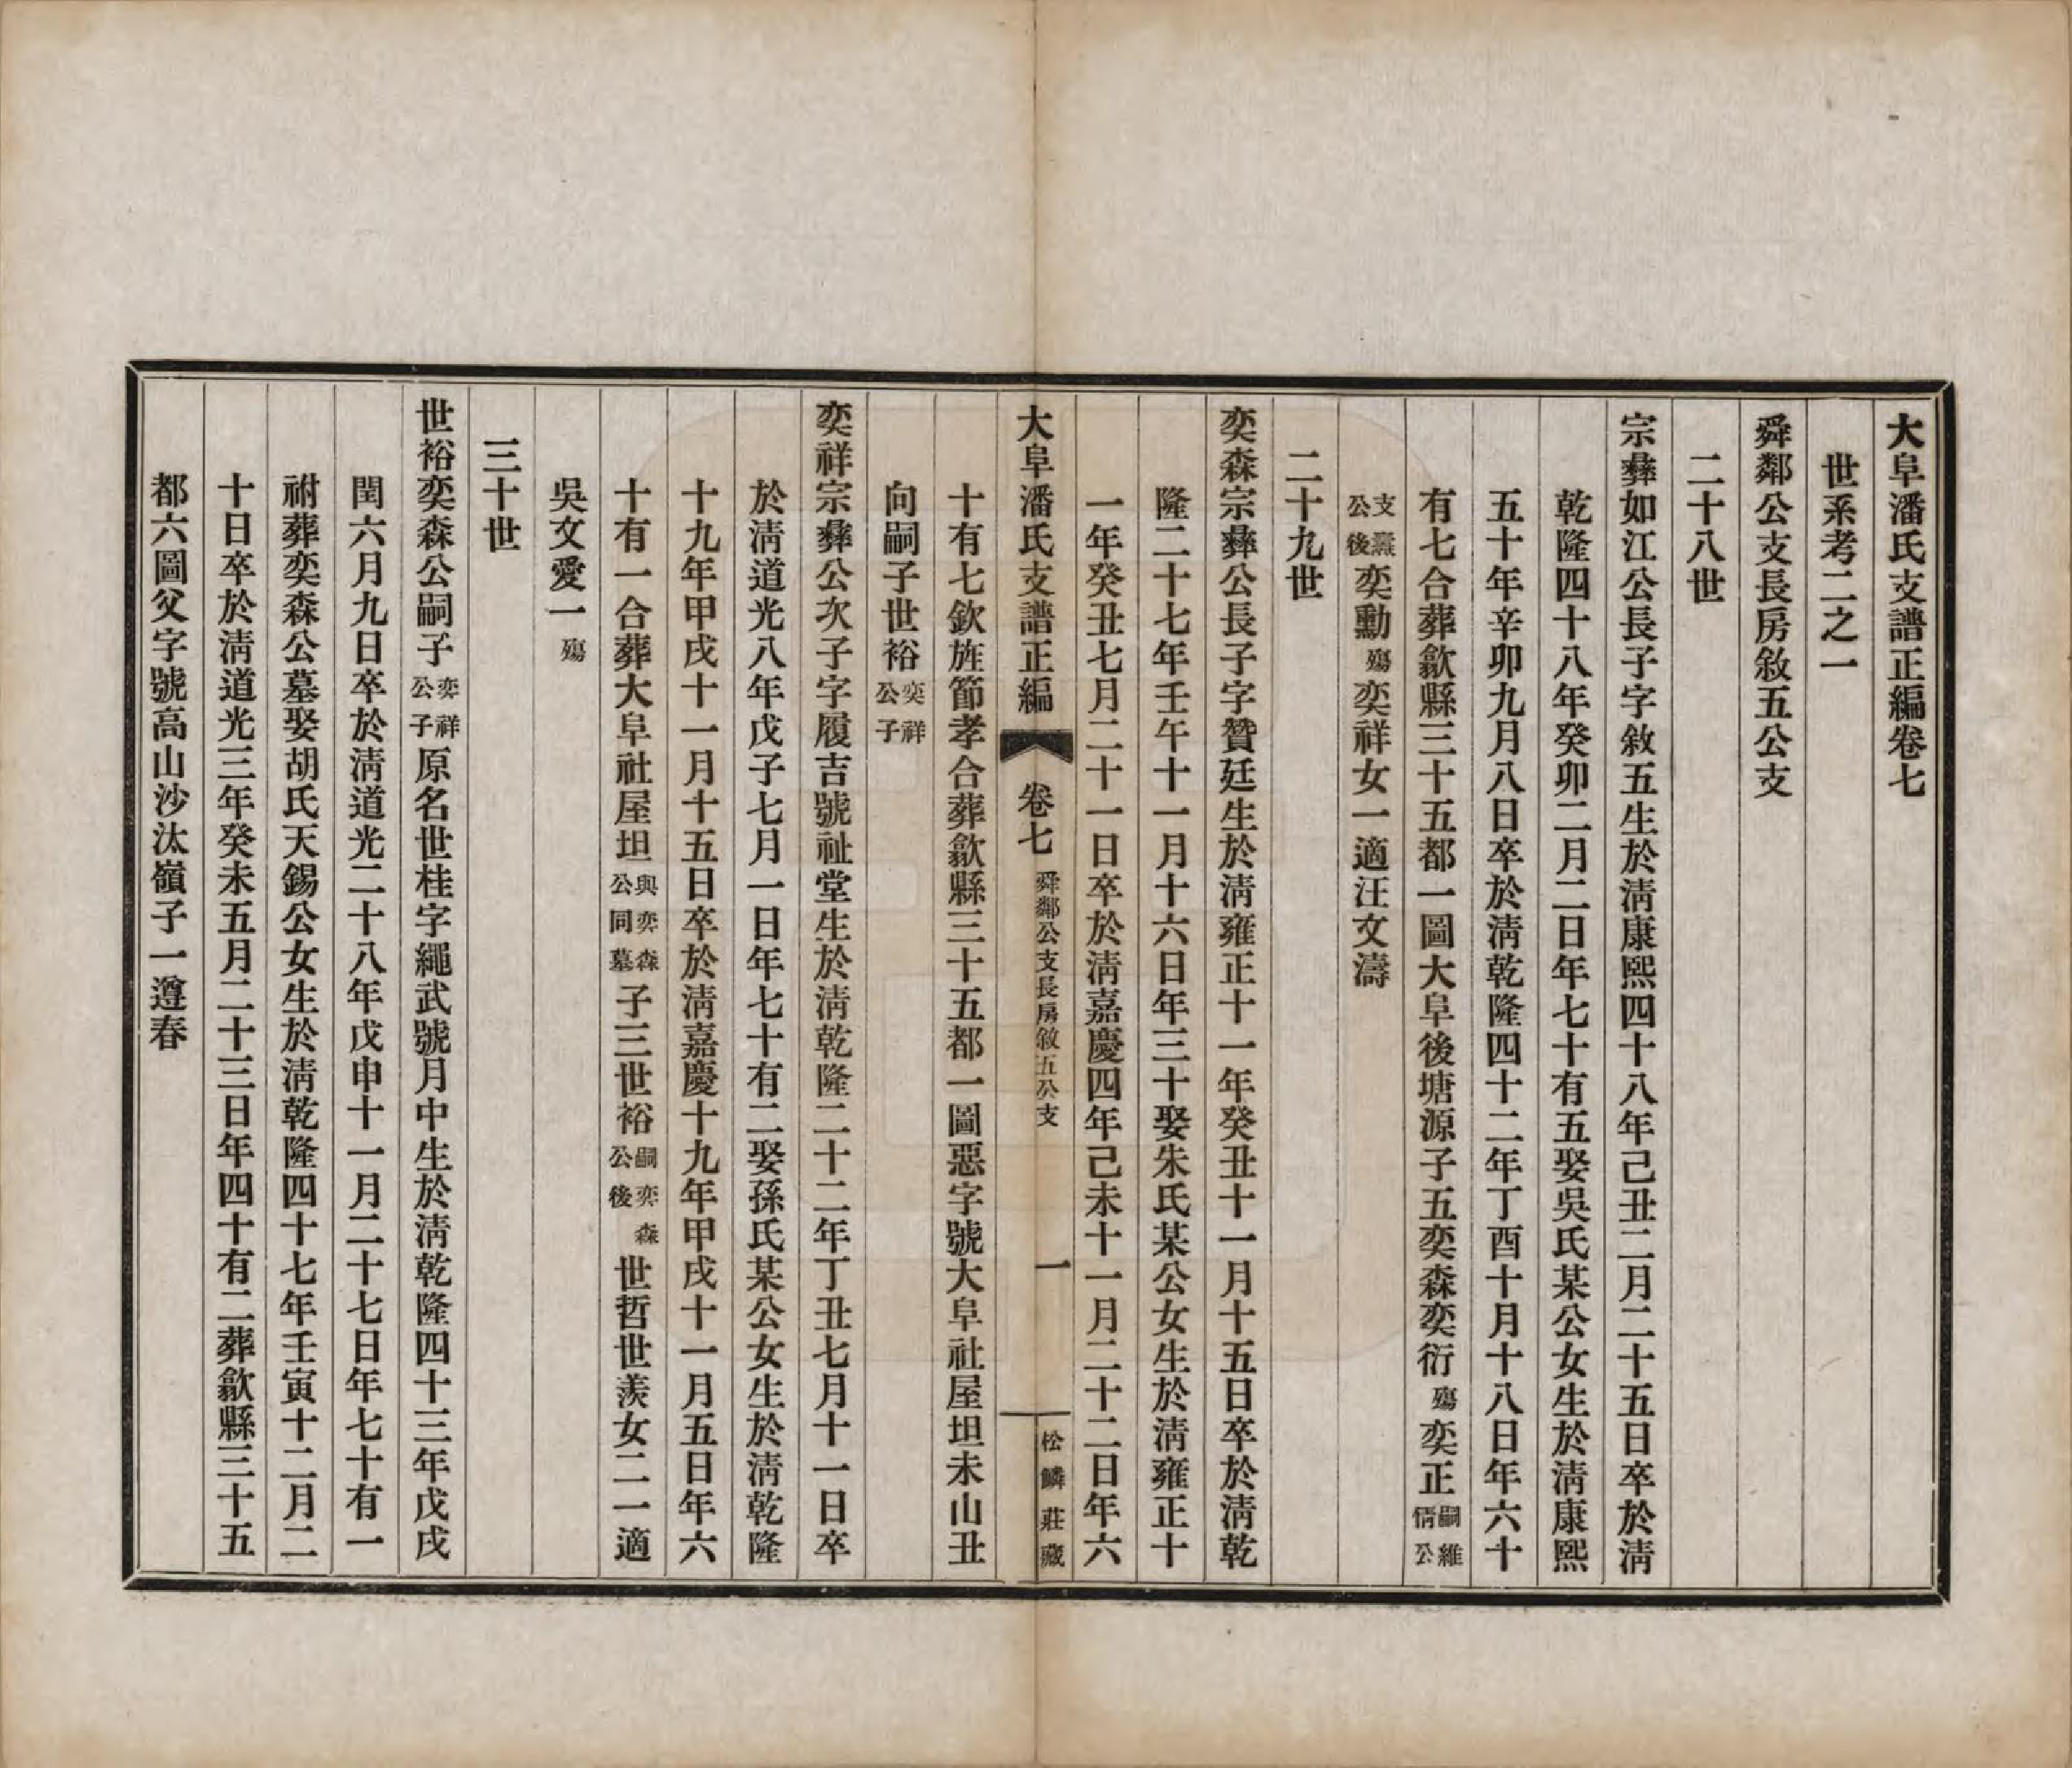 大阜潘氏支譜正編卷七
世系考二之一
舜鄰公支長房敘五公支
二十八世
宗彝如江公長子字敘五生於淸康熙四十八年己丑二月二十五日卒於淸
乾隆四十八年癸卯二月二日年七十有五娶吳氏某公女生於淸康熙
五十年辛卯九月八日卒於淸乾隆四十二年丁酉十月十八日年六十
有七合葬歙縣三十五都一圖大阜後塘源子五奕森奕衍殤奕正嗣維情公
支燾公後奕勳殤奕祥女一適汪文濤
二十九世
奕森宗彝公長子字贊廷生於淸雍正十一年癸丑十一月十五日卒於淸乾
隆二十七年壬午十一月十六日年三十娶朱氏某公女生於淸雍正十
一年癸丑七月二十一日卒於淸嘉慶四年己未十一月二十二日年六
大阜潘氏支譜正編 卷七 舜鄰公支長房敘五公支 一 松鱗莊藏
十有七欽旌節孝合葬歙縣三十五都一圖惡字號大阜社屋坦未山丑
向嗣子世裕奕祥公子
奕祥宗彝公次子字履吉號祉堂生於淸乾隆二十二年丁丑七月十一日卒
於淸道光八年戊子七月一日年七十有二娶孫氏某公女生於淸乾隆
十九年甲戌十一月十五日卒於淸嘉慶十九年甲戌十一月五日年六
十有一合葬大阜社屋坦與奕森公同墓子三世裕嗣奕森公後世哲世羨女二一適
吳文愛一殤
三十世
世裕奕森公嗣子奕祥公子原名世桂字繩武號月中生於淸乾隆四十三年戊戌
閏六月九日卒於淸道光二十八年戊申十一月二十七日年七十有一
祔葬奕森公墓娶胡氏天錫公女生於淸乾隆四十七年壬寅十二月二
十日卒於淸道光三年癸未五月二十三日年四十有二葬歙縣三十五
都六圖父字號高山沙汰嶺子一遵春